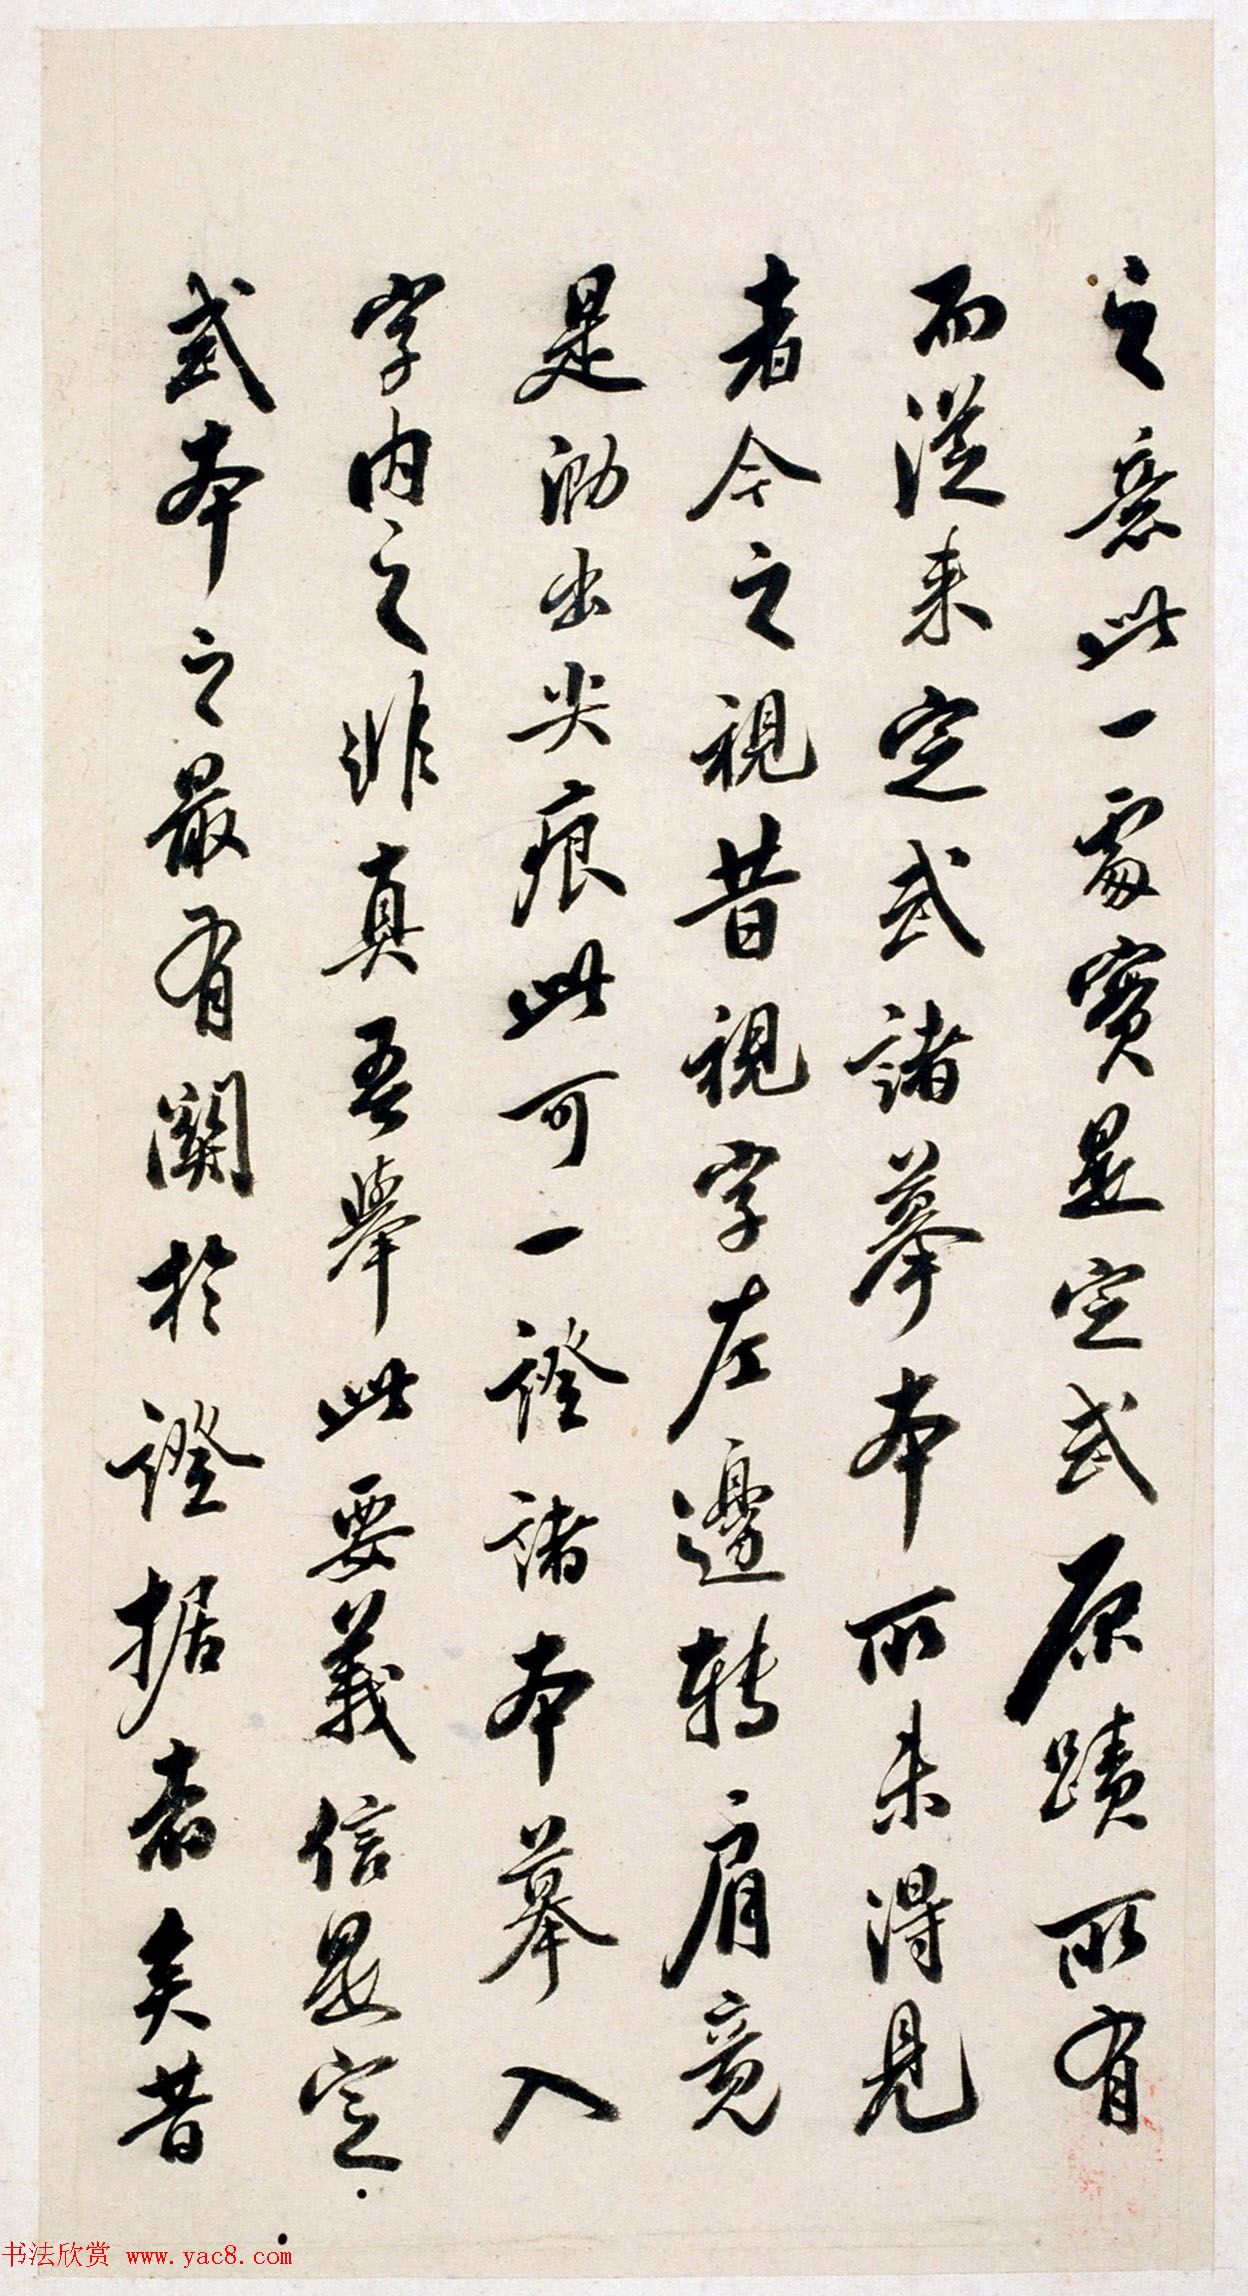 之意此一處實是定武原蹟所有
而從來定武諸摹本所未得見
者今之視昔視字左邊轉肩竟
是泐出尖痕此可一證諸本摹入
字內之非真吾舉此要義信是定
武本之最有關於證據者矣昔
书法欣赏 www.yac8.com